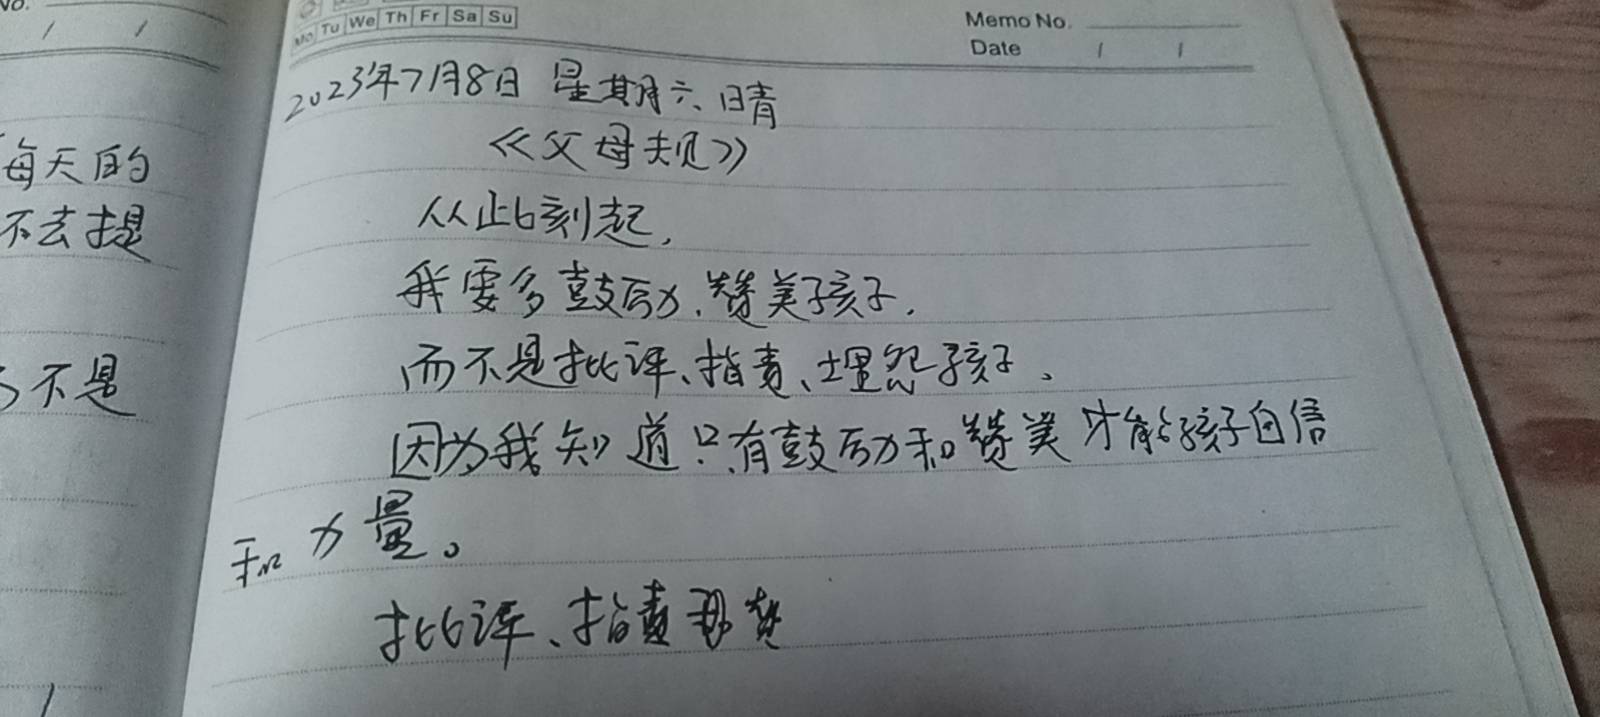 No.
/ /
每天的
不去提
不是
Mo Tu We Th Fr Sa Su
Memo No.
Date / /
2023年7月8日 星期六、晴
《父母规》
从此刻起,
我要多鼓励、赞美孩子,
而不是批评、指责、埋怨孩子、
因为我知道只有鼓励和赞美才能孩子自信
和力量。
批评、指责